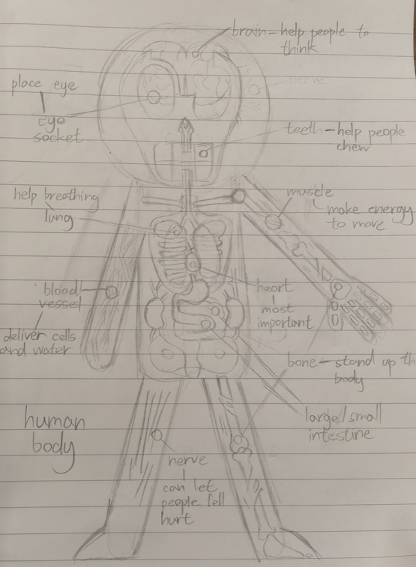 brain - help people to
think
place eye
eye
socket
teeth - help people
chew
help breathing
lung
muscle
make energy
to move
blood
vessel
deliver cells
and water
heart
most
important
bone - stand up th
body
large/small
intestine
human
body
nerve
can let
people fell
hurt